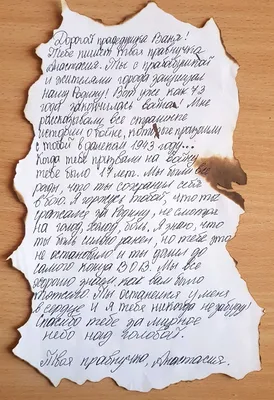 Дорогой прадедушка Ваня!
Тебе пишет твоя правнучка
Анастасия. Мы с прабабушкой
и жителями города защищал
нашу Родину! Вот уже как 73
года закончилась война! Мне
рассказывали, все страшные
истории о войне,
с тобой в далеком 1943 году...
Когда тебя призвали на войну
тебе было 17 лет. Мы были все
рады, что ты сохранил себя
в бою. Я горжусь тобой, что ты
сражался за Родину, не смотря
на голод, холод, боль. Я знаю, что
ты был сильно ранен, но тебя это
не остановило и ты дошёл до
самого конца ВОВ. Мы все
знаем, как вам было
Мы останешься у меня
в сердце и я тебя никогда не забуду!
Спасибо тебе за мирное
небо над головой.
Твоя правнучка, Анастасия.